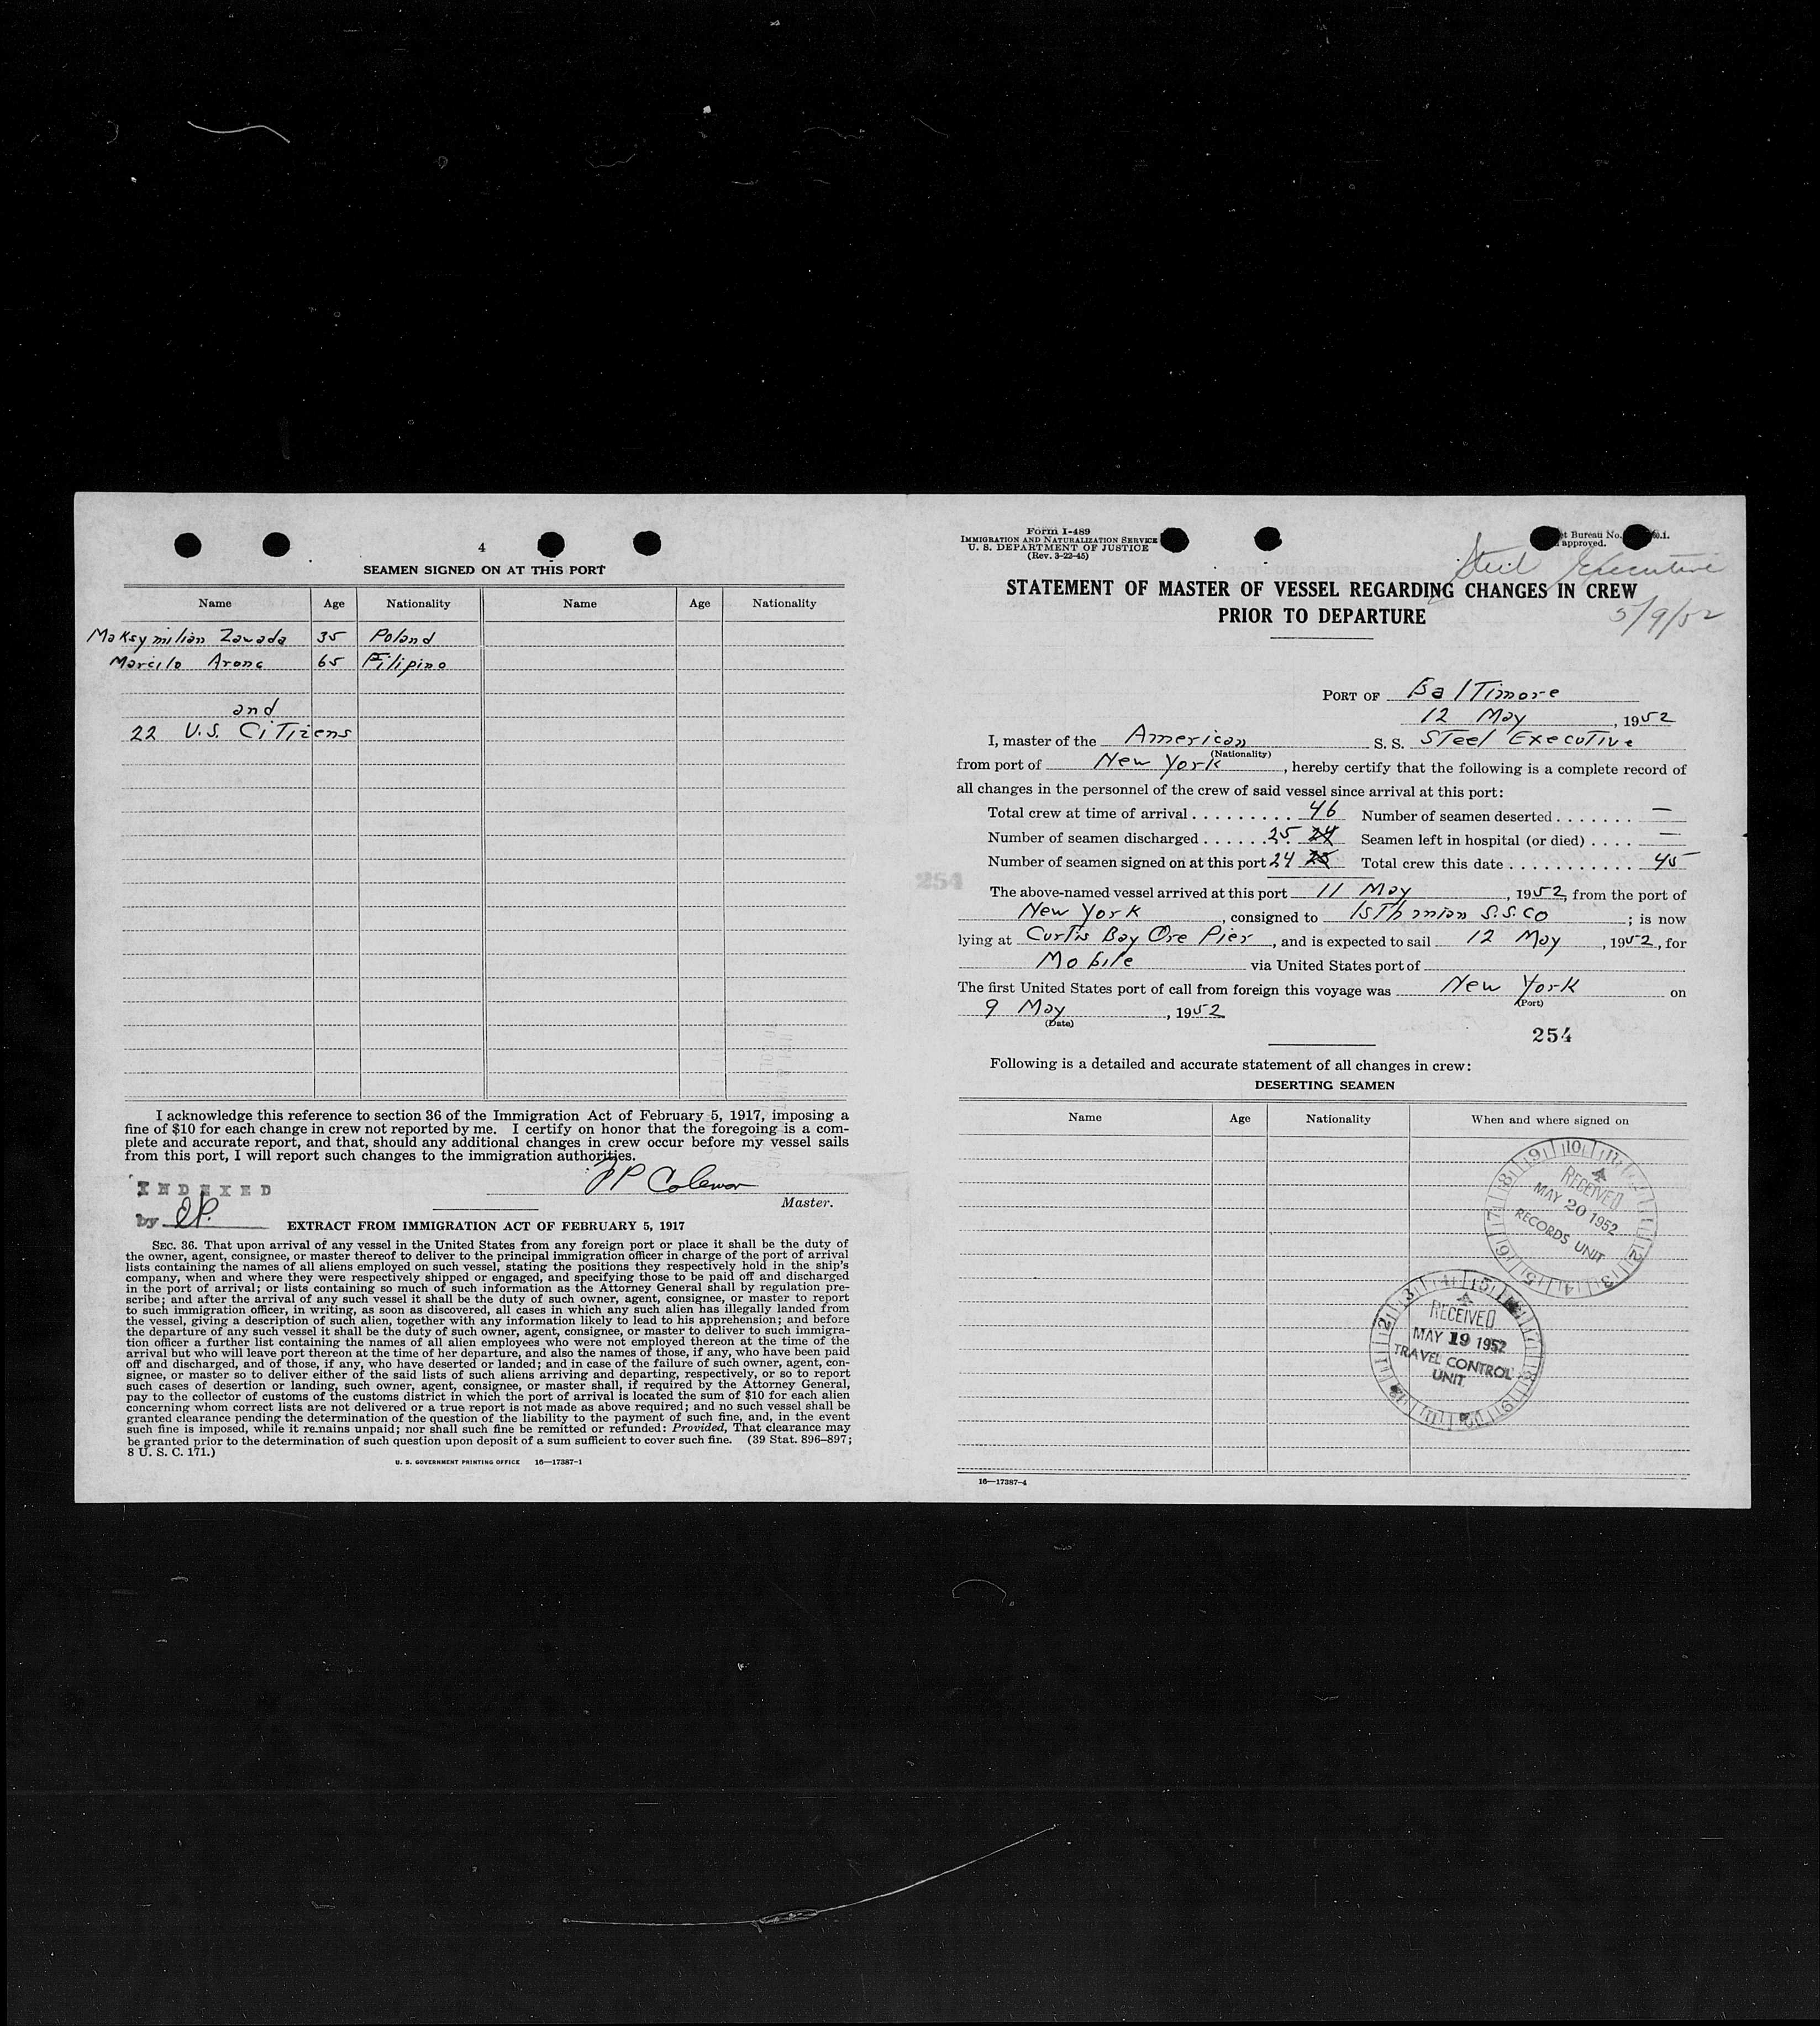 4
SEAMEN SIGNED ON AT THIS PORT
Name Age Nationality Name Age Nationality
Maksymilian Zawada 35 Poland
Marcilo Arong 65 Filipino
and
22 U.S. Citizens
I acknowledge this reference to section 36 of the Immigration Act of February 5, 1917, imposing a
fine of $10 for each change in crew not reported by me. I certify on honor that the foregoing is a com-
plete and accurate report, and that, should any additional changes in crew occur before my vessel sails
from this port, I will report such changes to the immigration authorities.
Master.
INDEXED
by
EXTRACT FROM IMMIGRATION ACT OF FEBRUARY 5, 1917
SEC. 36. That upon arrival of any vessel in the United States from any foreign port or place it shall be the duty of
the owner, agent, consignee, or master thereof to deliver to the principal immigration officer in charge of the port of arrival
lists containing the names of all aliens employed on such vessel, stating the positions they respectively hold in the ship's
company, when and where they were respectively shipped or engaged, and specifying those to be paid off and discharged
in the port of arrival; or lists containing so much of such information as the Attorney General shall by regulation pre-
scribe; and after the arrival of any such vessel it shall be the duty of such owner, agent, consignee, or master to report
to such immigration officer, in writing, as soon as discovered, all cases in which any such alien has illegally landed from
the vessel, giving a description of such alien, together with any information likely to lead to his apprehension; and before
the departure of any such vessel it shall be the duty of such owner, agent, consignee, or master to deliver to such immigra-
tion officer a further list containing the names of all alien employees who were not employed thereon at the time of the
arrival but who will leave port thereon at the time of her departure, and also the names of those, if any, who have been paid
off and discharged, and of those, if any, who have deserted or landed; and in case of the failure of such owner, agent, con-
signee, or master so to deliver either of the said lists of such aliens arriving and departing, respectively, or so to report
such cases of desertion or landing, such owner, agent, consignee, or master shall, if required by the Attorney General,
pay to the collector of customs of the customs district in which the port of arrival is located the sum of $10 for each alien
concerning whom correct lists are not delivered or a true report is not made as above required; and no such vessel shall be
granted clearance pending the determination of the question of the liability to the payment of such fine, and, in the event
such fine is imposed, while it remains unpaid; nor shall such fine be remitted or refunded: Provided, That clearance may
be granted prior to the determination of such question upon deposit of a sum sufficient to cover such fine. (39 Stat. 896–897;
8 U. S. C. 171.)
U. S. GOVERNMENT PRINTING OFFICE 16—17387-1
Form I-489
IMMIGRATION AND NATURALIZATION SERVICE
U. S. DEPARTMENT OF JUSTICE
(Rev. 3-22-45)
Bureau No.
approved.
Steel Executive
5/9/52
STATEMENT OF MASTER OF VESSEL REGARDING CHANGES IN CREW
PRIOR TO DEPARTURE
PORT OF Baltimore
12 May, 1952
I, master of the American S. S. Steel Executive
(Nationality)
from port of New York, hereby certify that the following is a complete record of
all changes in the personnel of the crew of said vessel since arrival at this port:
Total crew at time of arrival 46 Number of seamen deserted —
Number of seamen discharged 25 24 Seamen left in hospital (or died) —
Number of seamen signed on at this port 24 25 Total crew this date 45
The above-named vessel arrived at this port 11 May, 1952, from the port of
New York, consigned to Isthmian S.S. Co; is now
lying at Curtis Bay Ore Pier, and is expected to sail 12 May, 1952, for
Mobile via United States port of
The first United States port of call from foreign this voyage was New York on
(Port)
9 May, 1952
(Date)
254
254
Following is a detailed and accurate statement of all changes in crew:
DESERTING SEAMEN
Name Age Nationality When and where signed on
RECEIVED
MAY 20 1952
RECORDS UNIT
RECEIVED
MAY 19 1952
TRAVEL CONTROL
UNIT
16—17387-4